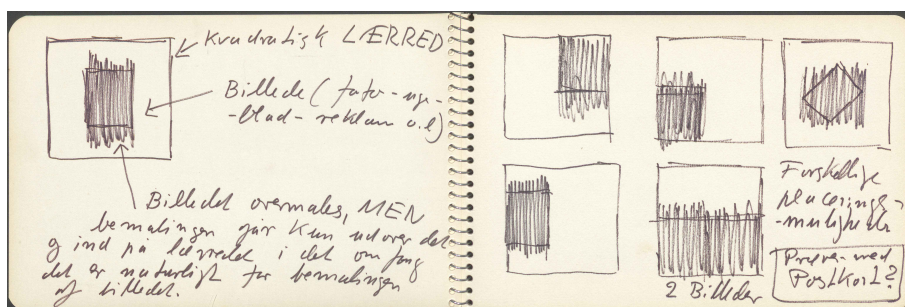 Kvadratisk LÆRRED
Billede (foto-uge-
-blad-reklame o.l)
Billedet overmales, MEN
bemalingen går kun udover det
og ind på lærredet i det omfang
det er naturligt for bemalingen
af billedet.
Forskellige
placerings-
-muligheder
Prøver med
POSTKORT?
2 Billeder